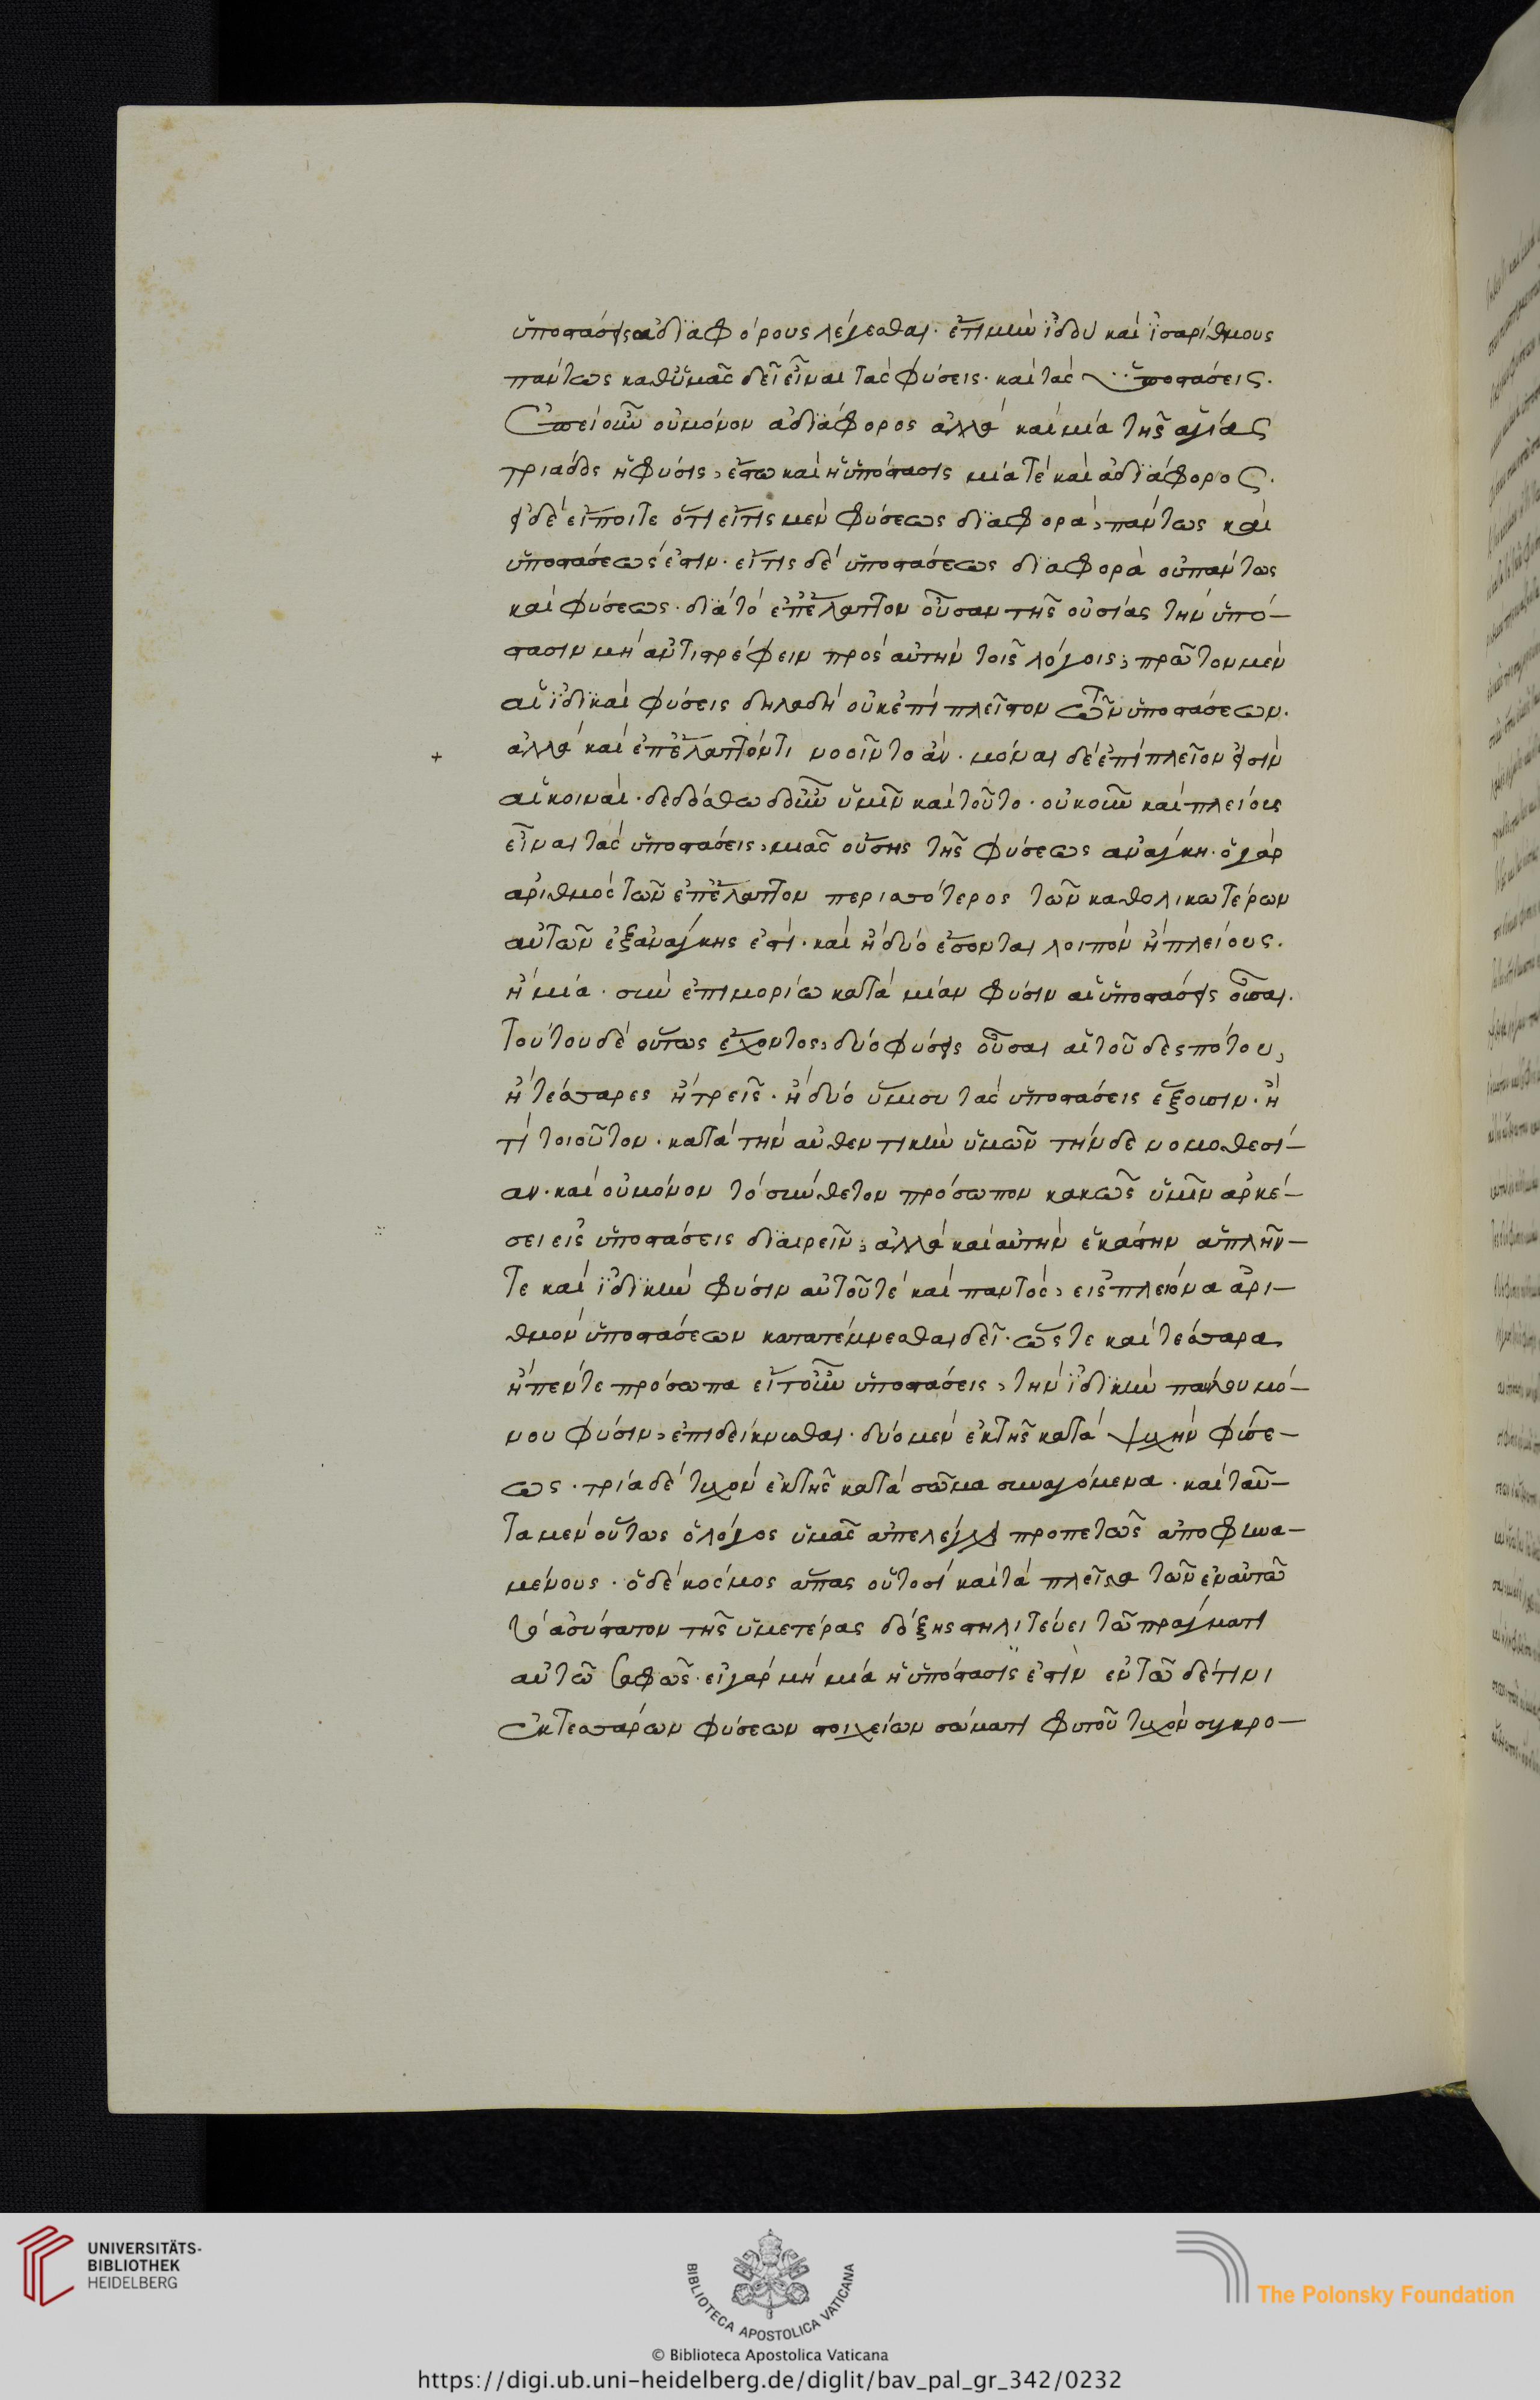 ὑποστάσεις ἀδϊαφόρους λέγεσθαι· ἔτι μὴν ἰδοὺ καὶ ἰσαρίθμους
πάντως καθ' ὑμᾶς δεῖ εἶναι τὰς φύσεις· καὶ τὰς ὑποστάσεις.
Ἐπεὶ οὖν οὐ μόνον ἀδϊάφορος ἀλλὰ καὶ μία τῆς ἁγίας
τριάδος ἡ φύσις, ἔστω καὶ ἡ ὑπόστασις μία τὲ καὶ ἀδϊάφορος.
εἰ δὲ εἴποιτε ὅτι εἴ τις μὲν φύσεως δϊαφορὰ, πάντως καὶ
ὑποστάσεως ἐστιν· εἴ τις δὲ ὑποστάσεως δϊαφορὰ οὐ πάντως
καὶ φύσεως· δϊὰ τὸ ἐπ' ἔλαττον οὖσαν τῆς οὐσίας τὴν ὑπό–
στασιν μὴ ἀντιστρέφειν πρὸς αὐτὴν τοῖς λόγοις, πρῶτον μὲν
αἱ ἰδϊκαὶ φύσεις δηλαδὴ οὐκ ἐπὶ πλεῖστον τῶν ὑποστάσεων.
+ ἀλλὰ καὶ ἐπ' ἔλαττόν τι νοοῖντο ἄν· μόναι δὲ ἐπὶ πλεῖον εἰσὶν
αἱ κοιναί· δεδόσθω δ' οὖν ὑμῖν καὶ τοῦτο· οὐκοῦν καὶ πλείους
εἶναι τὰς ὑποστάσεις, μιᾶς οὔσης τῆς φύσεως ἀνάγκη· ὁ γὰρ
ἀριθμὸς τῶν ἐπ' ἔλαττον περισσότερος τῶν καθολικωτέρων
αὐτῶν ἐξανάγκης ἐστί· καὶ ἢ δύο ἔσονται λοιπὸν ἢ πλείους.
ἢ μία· σὺν ἐπιμορίω κατὰ μίαν φύσιν αἱ ὑποστάσεις οὖσαι.
Τούτου δὲ οὕτως ἔχοντος, δύο φύσεις οὖσαι αἱ τοῦ δεσπότου,
ἢ τέσσαρες ἢ τρεῖς· ἢ δύο ἥμισυ τὰς ὑποστάσεις ἕξουσιν· ἤ
τι τοιοῦτον· κατὰ τὴν αὐθεντικὴν ὑμῶν τήνδε νομοθεσί–
αν· καὶ οὐ μόνον τὸ σύνθετον πρόσωπον κακῶς ὑμῖν ἀρκέ–
σει εἰς ὑποστάσεις δϊαιρεῖν, ἀλλὰ καὶ αὐτὴν ἑκάστην ἁπλῆν–
τε καὶ ἰδϊκὴν φύσιν αὐτοῦ τὲ καὶ παντὸς, εἰς πλείονα ἀρι–
θμὸν ὑποστάσεων κατατέμνεσθαι δεῖ· ὥς τε καὶ τέσσαρα
ἢ πέντε πρόσωπα εἴτ' οὖν ὑποστάσεις, τὴν ἰδϊκὴν παύλου μό–
νου φύσιν, ἐπιδείκνυσθαι· δύο μὲν ἐκ τῆς κατὰ ψυχὴν φύσε–
ως· τρία δὲ τυχὸν ἐκ τῆς κατὰ σῶμα συναγόμενα· καὶ ταῦ–
τα μὲν οὕτως ὁ λόγος ὑμᾶς ἀπελέγχει προπετῶς ἀποφηνα–
μένους· ὁ δὲ κόσμος ἅπας οὑτοσὶ καὶ τὰ πλεῖστα τῶν ἐν αὐτῶ
τὸ ἀσύστατον τῆς ὑμετέρας δόξης στηλιτεύει τῶ πράγματι
αὐτῶ σαφῶς· εἰ γὰρ μὴ μία ἡ ὑπόστασις ἐστὶν ἐν τῶ δέ τινι
ἐκ τεσσάρων φύσεων στοιχείων σώματι φυτοῦ τυχὸν συγκρο–
UNIVERSITÄTS-
BIBLIOTHEK
HEIDELBERG
BIBLIOTECA APOSTOLICA VATICANA
The Polonsky Foundation
© Biblioteca Apostolica Vaticana
https://digi.ub.uni-heidelberg.de/diglit/bav_pal_gr_342/0232